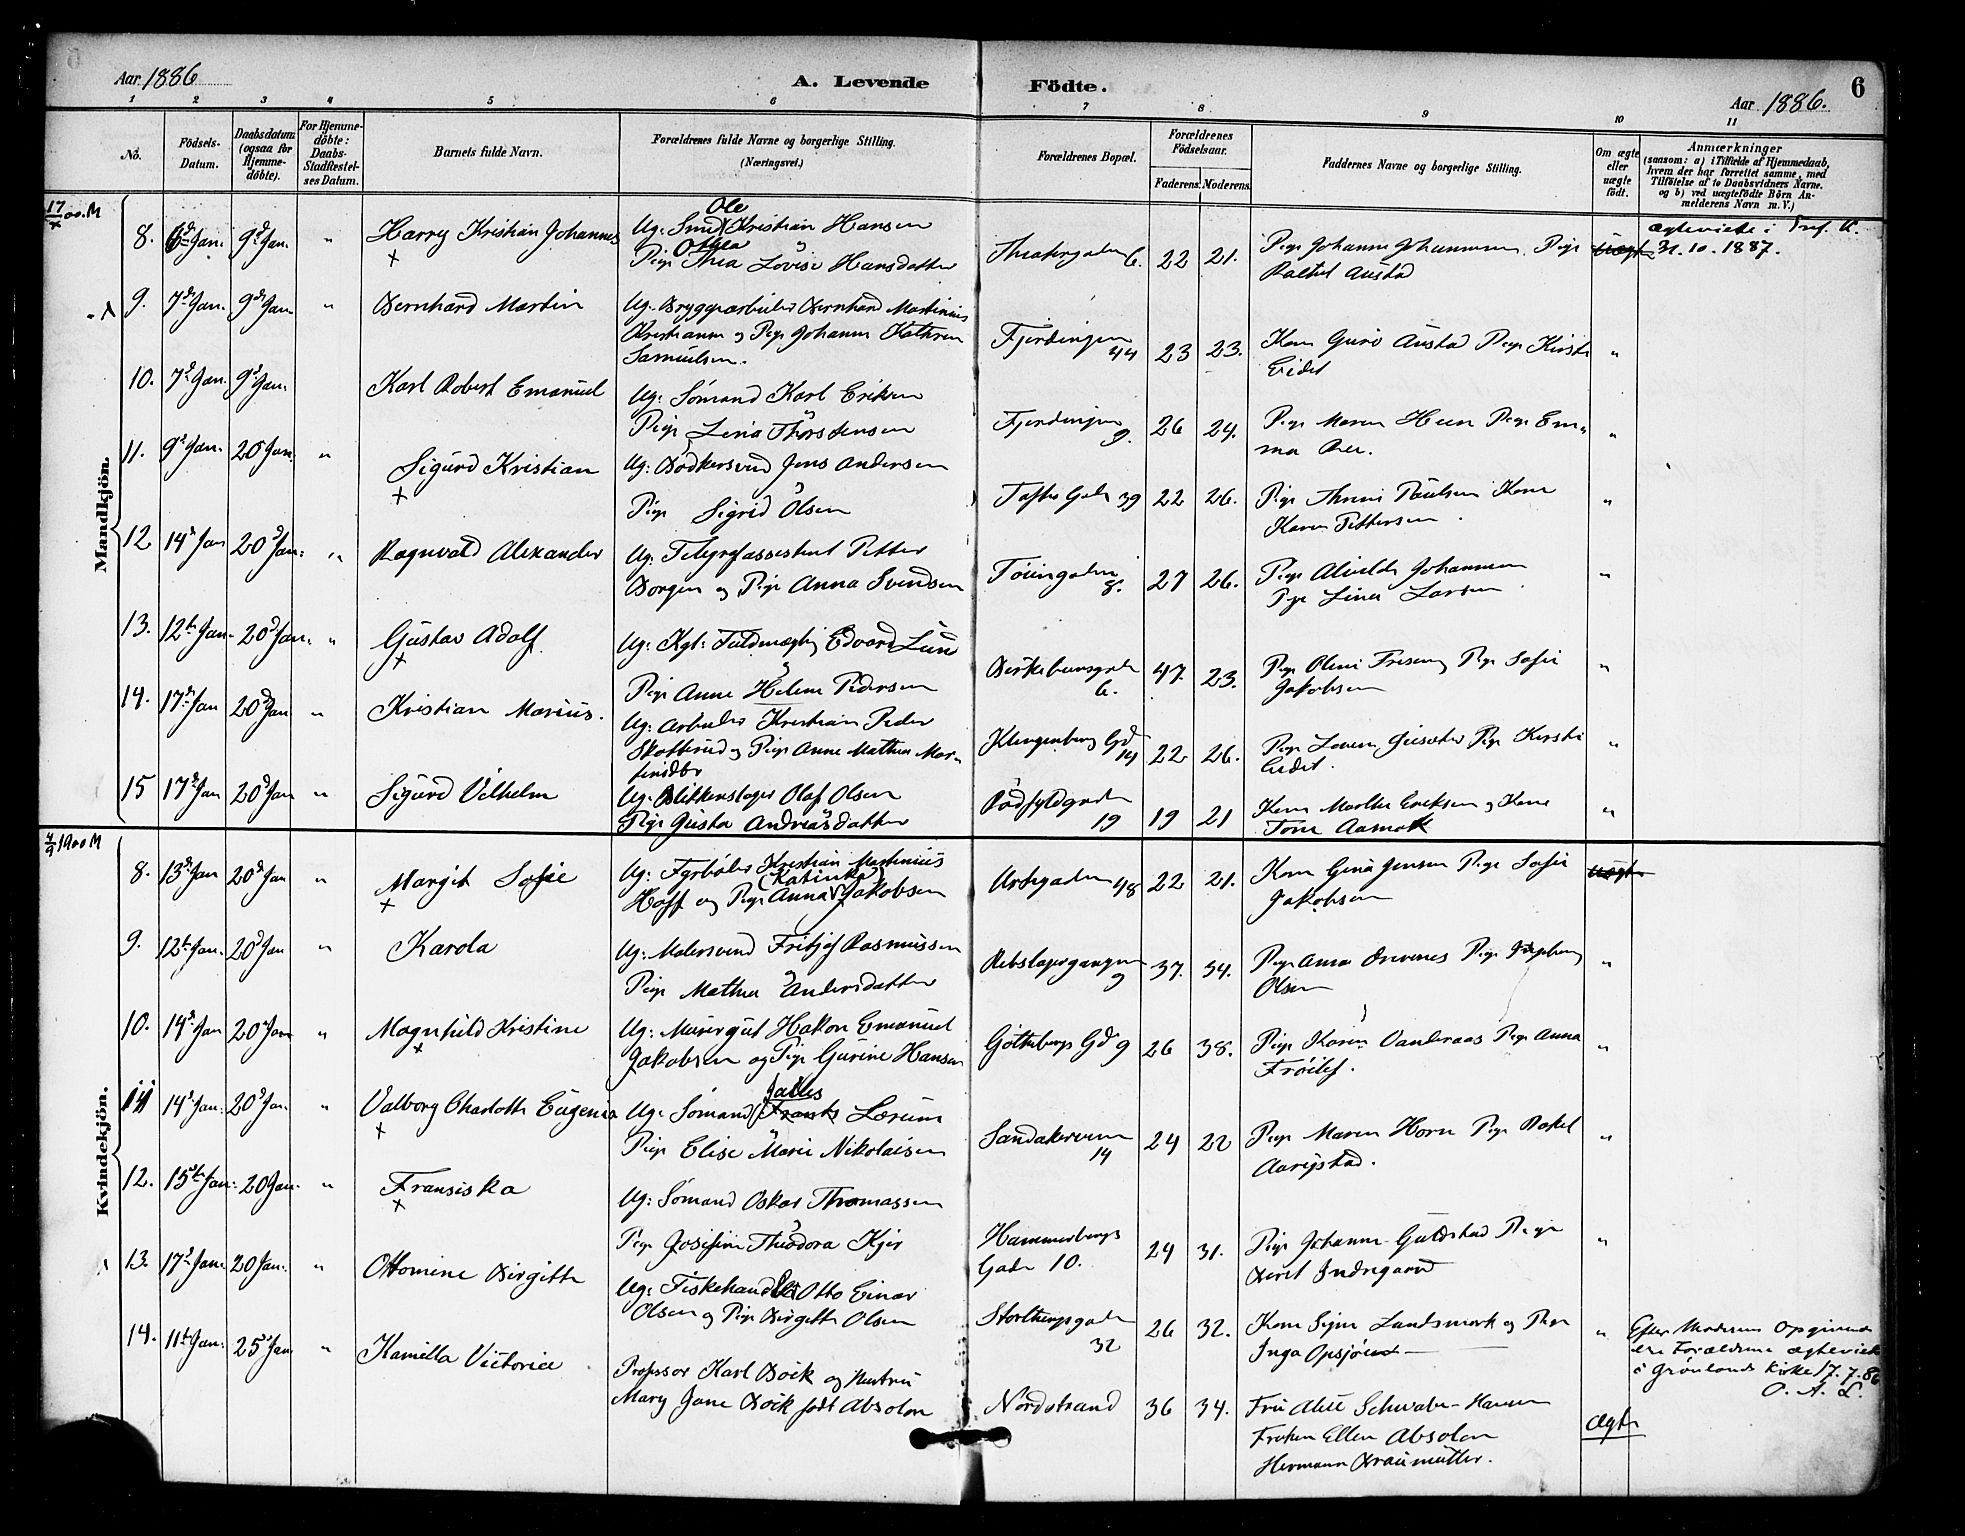 Aar 1886
A. Levende Födte.
6
Aar 1886.
1 2 3 4 5 6 7 8 9 10 11
No.
Födsels-Datum.
Daabsdatum (ogsaa for Hjemme-döbte).
For Hjemme-döbte: Daabs-Stadfæstelses Datum.
Barnets fulde Navn.
Forældrenes fulde Navne og borgerlige Stilling.
(Næringsvei.)
Forældrenes Bopæl.
Forældrenes Födselsaar.
Faderens. Moderens.
Faddernes Navne og borgerlige Stilling.
Om ægte eller uægte födt.
Anmærkninger
(saasom: a) i Tilfælde af Hjemmedaab,
hvem der har forrettet samme, med
Tilföielse af to Daabsvidners Navne,
og b) ved uægtefödte Börn An-
melderens Navn m. V.)
Mandkjön.
8. 6d Jan. 9d Jan. " Harry Kristian Johannes
Ug. Smed Ole Kristian Hansen
Pige Othea Thea Lovise Hansdatter
Theatergaden 6. 22 21.
Pige Johanne Johannesen Pige
Rakel Austad
Uægte
ægteviede i Tref. K.
31.10.1887.
9. 7d Jan. 9d Jan. " Bernhard Martin
Ug. Bryggearbeider Bernhard Martinius
Kristiansen og Pige Johanne Kathrine
Samuelsen.
Fjerdingen 44 23 23.
Kone Guro Austad Pige Kirsti
Eidet "
10. 7d Jan. 9d Jan. Karl Robert Emanuel
Ug: Sömand Karl Eriksen
Pige Lina Thorstensen
Fjerdingen 9. 26 24.
Pige Maren Heen Pige Em-
ma "
11. 9d Jan. 20 Jan. " Sigurd Kristian
Ug: Bödkersvend Jens Andersen
Pige Sigrid Olsen
Tofte Gade 39 22 26.
Pige Paulsen Kone
Karen Pettersen "
12 14d Jan 20d Jan. " Ragnvald Alexander
Ug: Telegrafassistent Petter
Borgen og Pige Anna Svendsen
Töiengaden 8. 27 26.
Pige Alvilde Johannesen
Pige Lina Larsen "
13. 12te Jan. 20d Jan. " Gustav Adolf
Ug: Kgl: Fuldmægtig Edvard Lund
Pige Anne Helene Pedersen
Birkebeinergaden 6. 47. 23.
Pige Oleni Pige Sofie
Jakobsen "
14. 17d Jan 20d Jan " Kristian Marius.
Ug: Arbeider Kristian Peder
Skofterud og Pige Anne Mathea Mar-
tinsdtr
Klingenberg Gd 14 22 26.
Pige Lovene Pige Kirsti
Eidet. "
15 17d Jan 20d Jan " Sigurd Vilhelm
Ug. Blikkenslager Olaf Olsen
Pige Gusta Andreasdatter
Rödfyldgaden 19 19 21
Kone Marthe Eriksen og Kone
Tone "
Kvindekjön.
8. 13d Jan 20d Jan " Margit Sofie
Ug: Fyrböder Kristian Martinius
Hoff og Pige Anna (Katinka) Jakobsen
Urtegaden 48 22 21.
Kone Gina Jensen Pige Sofie
Jakobsen
Uægte
9. 12te Jan. 20d Jan " Karola
Ug: Malersvend Fritjof Rasmussen
Pige Mathea Andersdatter
Rebslagergangen 9 37. 34.
Pige Anna Pige Ingeborg
Olsen "
10. 14d Jan 20d Jan " Magnhild Kristine
Ug: Murergut Hakon Emanuel
Jakobsen og Pige Gurine Hansen
Götteborgs Gd 9 26 38.
Pige Karen Vanderaas Pige Anna
"
11 14d Jan. 20d Jan. " Valborg Charlotte Eugenia
Ug: Sömand Jalles Frants Lærum
Pige Elise Marie Nikolaisen
Sandakerveien 14 24 22
Pige Maren Horn Pige Rakel
"
12. 15te Jan. 20 Jan. " Fransiska
Ug: Sömand Oskar Thomassen
Pige Josefine Theodora Kjer
Hammersbergs
Gade 10. 24 31.
Pige Johanne Guldstad Pige
Beret Indregaard "
13. 17d Jan. 20 Jan. " Ottomine Birgitte
Ug: Fiskehandler Otto Einar
Olsen og Pige Birgitte Olsen
Storthingsgaden 32 26 32.
Kone Signe Landsmark og Pige
Inga Opsjön "
Efter Moderens Opgivende
ere Forældrene ægteviede
i Grönlands Kirke 17.7.86
O. A. L.
14. 11te Jan. 25d Jan " Kamilla Victoria
Professor Karl Böik og Hustru
Mary Jane Böik födt Absolon
Nordstrand 36 34.
Fru Alice Schwabe-Hansen
Fröken Ellen Absolon
Hermann Braumüller.
Ægte